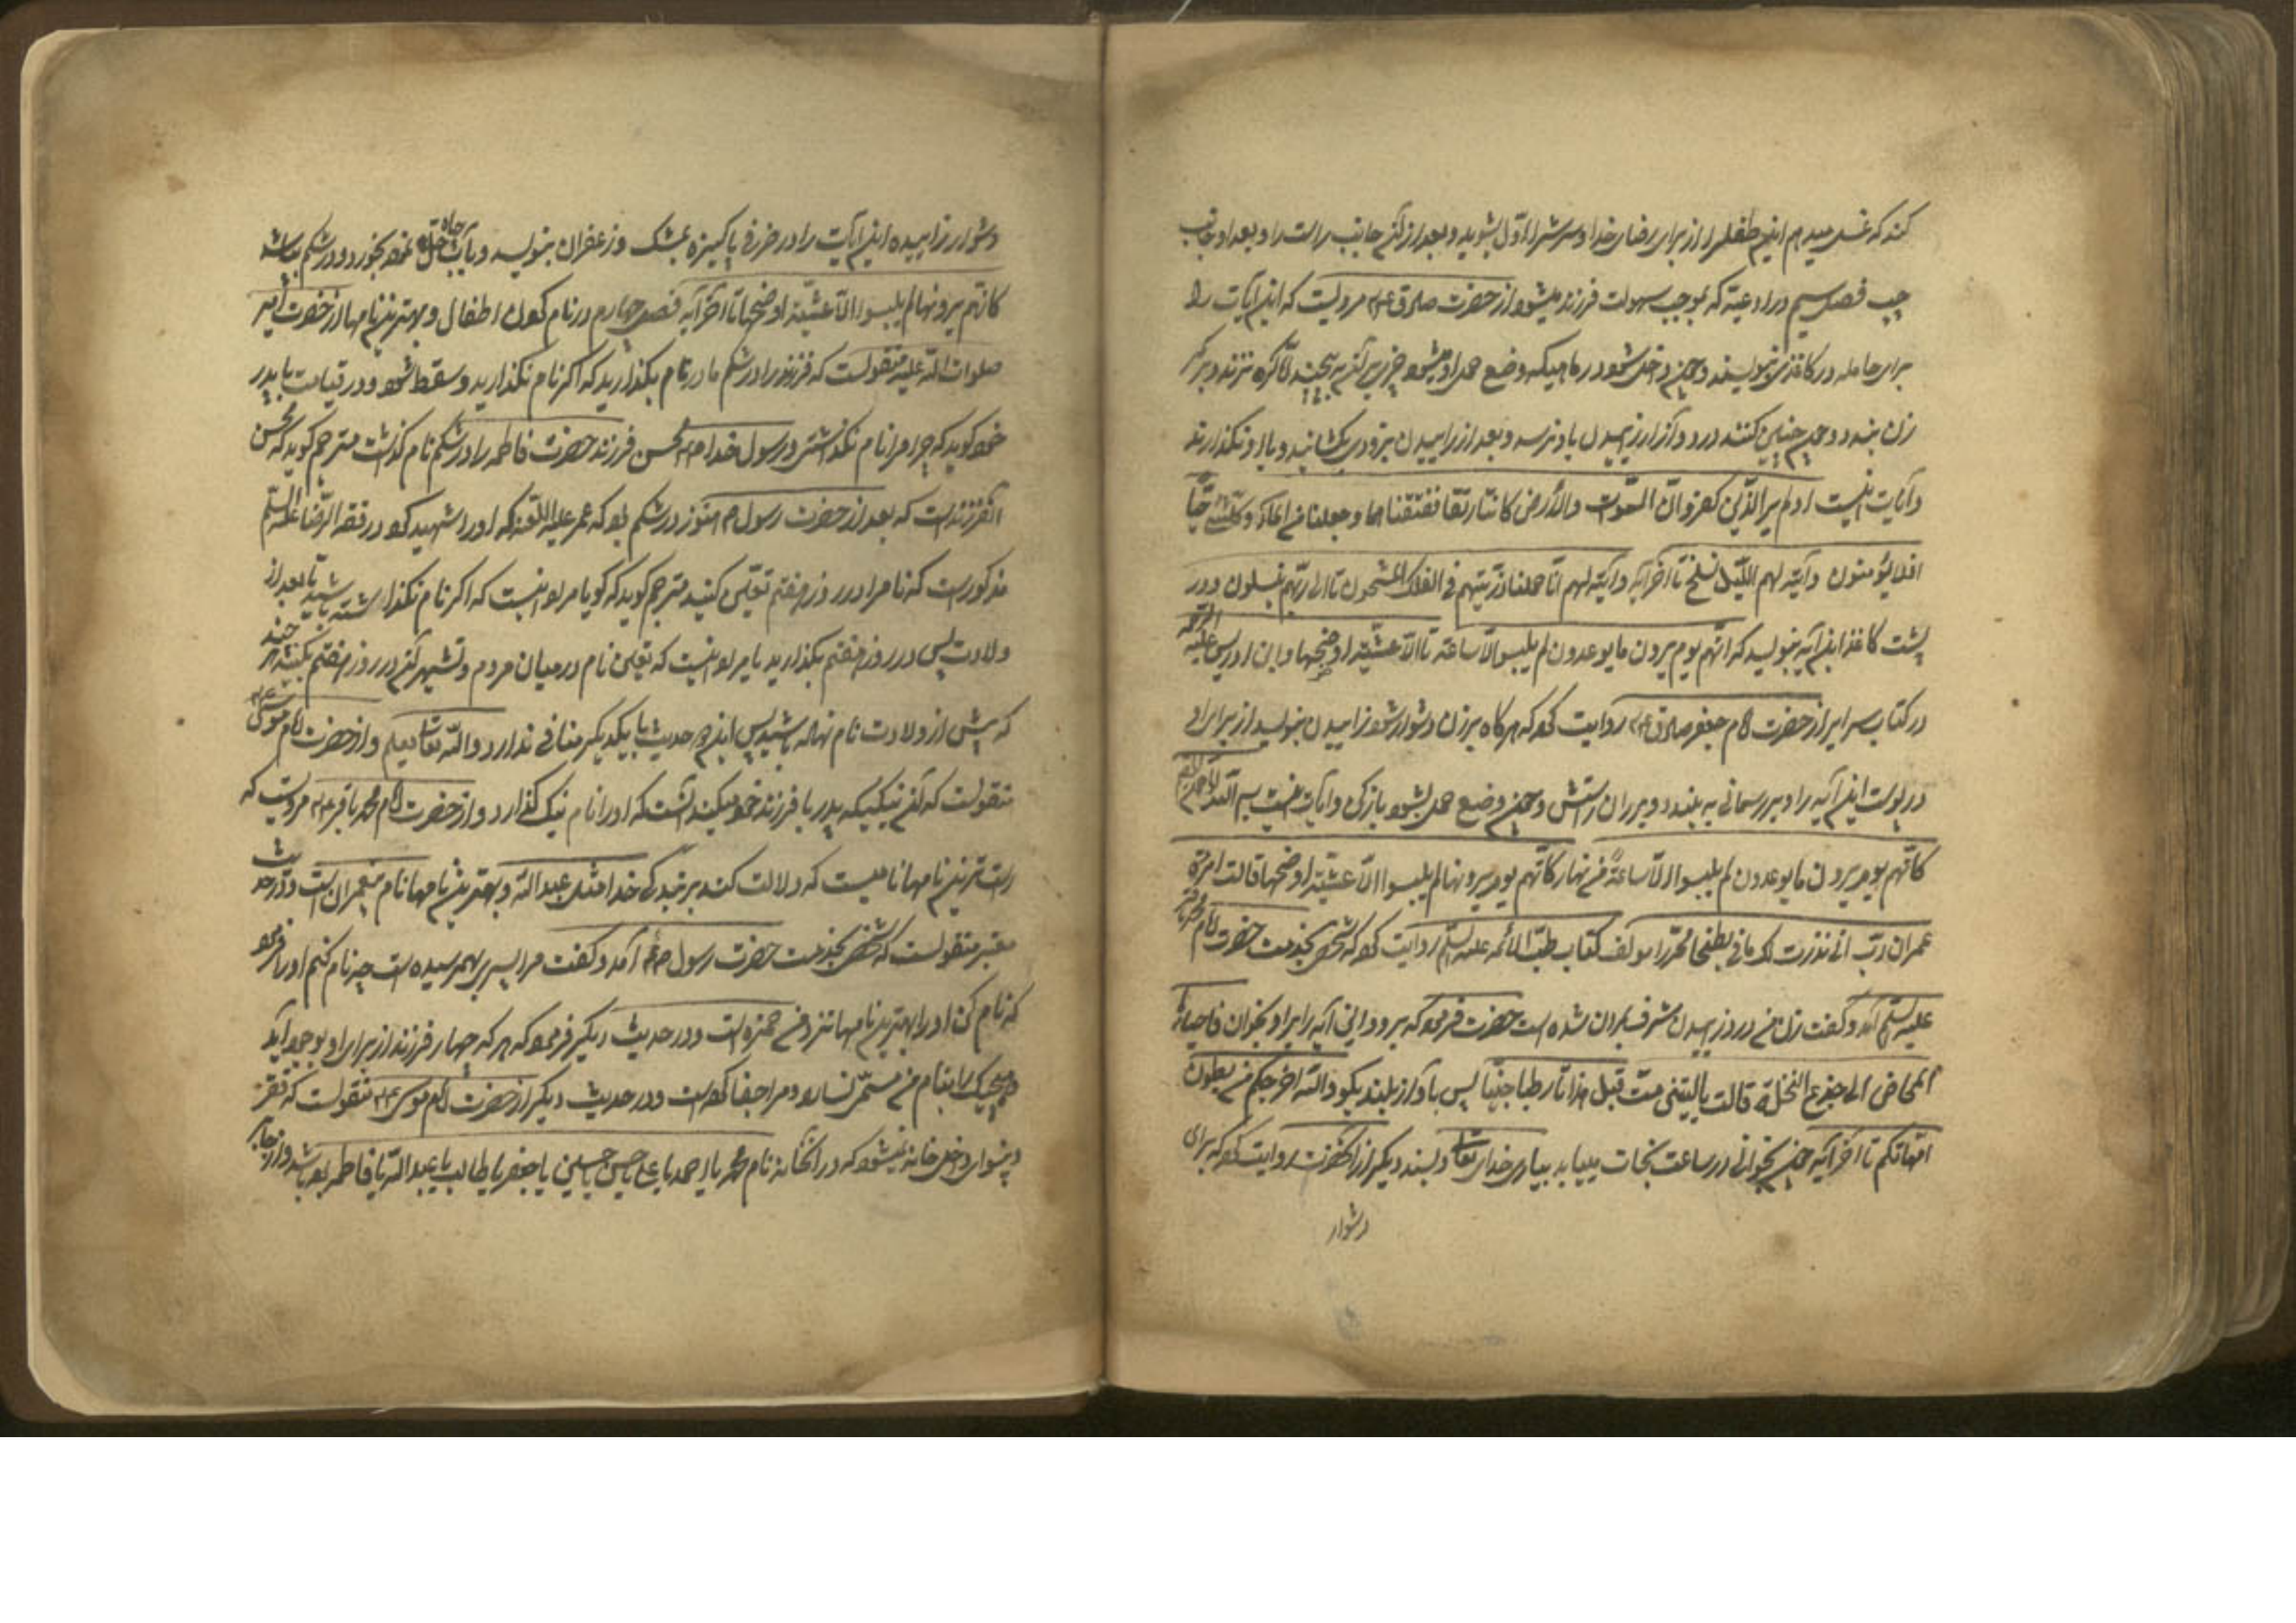 کند که غسل میدهم این طفل را از برای رضای خدا و سرش را اول بشوید و بعد از آن جانب راست را و بعد او جانب
چپ فصل سیم در ادعیة که بموجب سهولت فرزند میشود از حضرت صادق ع م مرویست که این آیات را
برای حامله در کاغذی بنویسند و چون داخل شود در ماهیکه وضع حمل او میشود چیزی بر آن بپیچند اما گره نزنند و بر کمر
زن بندد و چون چنین کنند درد و آزار زائیدن باو نرسد و بعد از زائیدن بزودی بکشایند و با او نگذارند
و آیات اینست اولم یر الذین کفروا انّ السموات والأرض کانتا رتقا ففتقناهما وجعلنا من الماء کل شئ حیّا
افلا یؤمنون وآیة لهم اللیل نسلخ تا آخر آیه وآیة لهم انّا حملنا ذرّیتهم فی الفلک المشحون تا الی ربّهم ینسلون و در
پشت کاغذ این آیه بنویسد که انّهم یوم یرون ما یوعدون لم یلبسوا الّا ساعة تا الّا عشیّة او ضحیها و ابن ادریس علیه الرحمه
در کتاب سرایر از حضرت امام جعفر صادق ع م روایت کرده که هرگاه بر زن دشوار شود زائیدن بنویسد از برای او
در پوست این آیه را و بر ریسمانی به بندد و بر ران راستش و چون وضع حمل بشود باز کن و آیات اینست بسم الله الرحمن الرحیم
کانّهم یوم یرون ما یوعدون لم یلبسوا الّا ساعةً من نهار کانّهم یوم یرونها لم یلبسوا الّا عشیّة او ضحیها قالت امرأة
عمران ربّ انی نذرت لک ما فی بطنی محرّرا مولف کتاب طبّ الائمه علیه السلم روایت کرده که شخصی بخدمت حضرت امام محمد باقر
علیه السلم آمد و گفت زن من در روز زائیدن مشرف بمردن شده است حضرت فرمود که برو و این آیه را بر او بخوان فاجاءها
المخاض الی جذع النخلة قالت یالیتنی متّ قبل هذا تا رطبا جنیّا پس بآواز بلند بگو والله اخرجکم من بطون
امّهاتکم تا آخر آیه چون بخوانی در ساعت نجات مییابد بیاری خدای تعالی و بسند دیگر از آنحضرت روایت کرده که برای
دشوار
دشوار زائیدن این آیات را در ظرفی پاکیزه بمشک و زعفران بنویسد و بآب چاه نموده بخورد و در شکم بپاشد
کانّهم یرونها لم یلبسوا الّا عشیّة او ضحیها تا آخر آیه فصل چهارم در نام کردن اطفال و بهترین نامها از حضرت امیر
صلوات الله علیه منقولست که فرزند را در شکم مادر نام بگذارید که اگر نام نگذارید و سقط شود و در قیامت با پدر
خود گوید که چرا مرا نام نگذاشتی و رسول خدا محسن فرزند حضرت فاطمه را در شکم نام گذاشت مترجم گوید که محسن
آنفرزندست که بعد از حضرت رسول هنوز در شکم بود که عمر علیه اللعنه او را شهید کرد و در فقه الرضا علیه السلم
مذکورست که نام را در روز هفتم تعیین کنید مترجم گوید که گویا مراد اینست که اگر نام نگذاشته باشید تا بعد از
ولادت پس در روز هفتم بگذارید یا مراد اینست که تعیین نام در میان مردم و تشهیر آن در روز هفتم بکنید هر چند
که پیش از ولادت نام نهاده باشید پس این دو حدیث با یکدیگر منافی ندارد والله تعالی یعلم و از حضرت امام موسی
منقولست که اول نیکی که پدر با فرزند خود میکند آنست که او را نام نیک گذارد و از حضرت امام محمد باقر ع م مرویست که
راست ترین نامها نامیست که دلالت کند بر بندگی خدا مثل عبد الله و بهترین نامها نام پیغمبران است و در حدیث
معتبر منقولست که شخصی بخدمت حضرت رسول آمد و گفت مرا پسری بهم رسیده است چه نام کنم او را فرمود
که نام کن او را بهترین نامها نزد من حمزه است و در حدیث دیگر فرمود که هر که چهار فرزند از برای او بوجود آید
و هیچیک را بنام من مسمّی نسازد مرا جفا کرده است و در حدیث دیگر از حضرت امام موسی ع م منقولست که فقر
و پریشانی داخل خانه نمیشود که در آنخانه نام محمد یا احمد یا علی یا حسن یا حسین یا جعفر یا طالب یا عبد الله یا فاطمه بوده باشد و از جابر